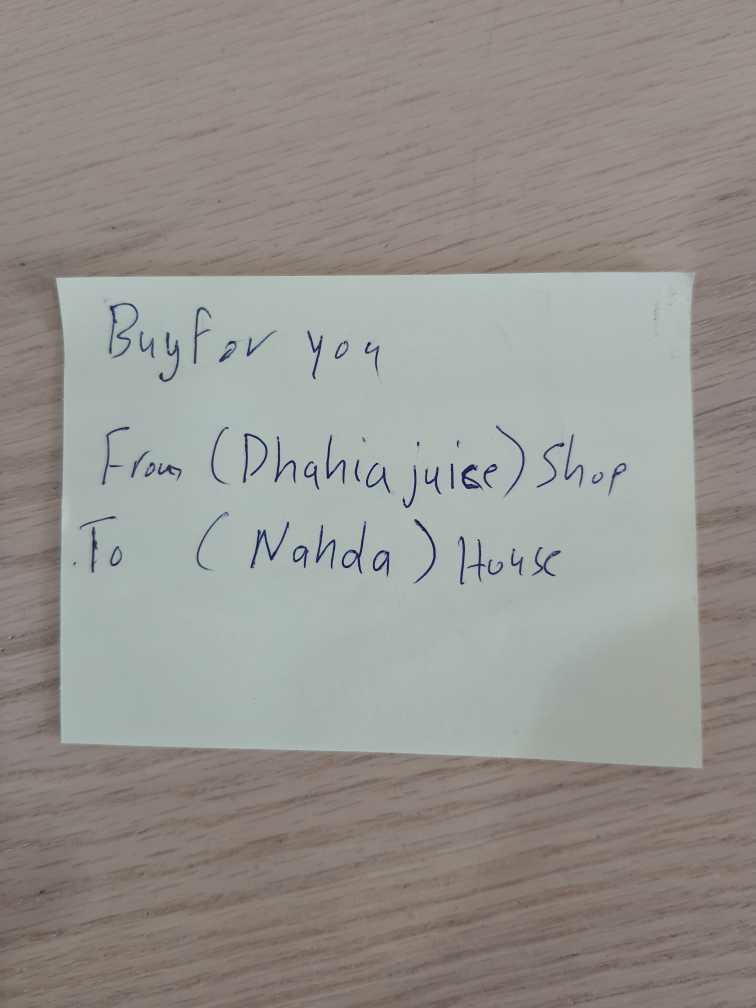 Buy for you
From (Dhahia juice) Shop
To ( Nahda ) House